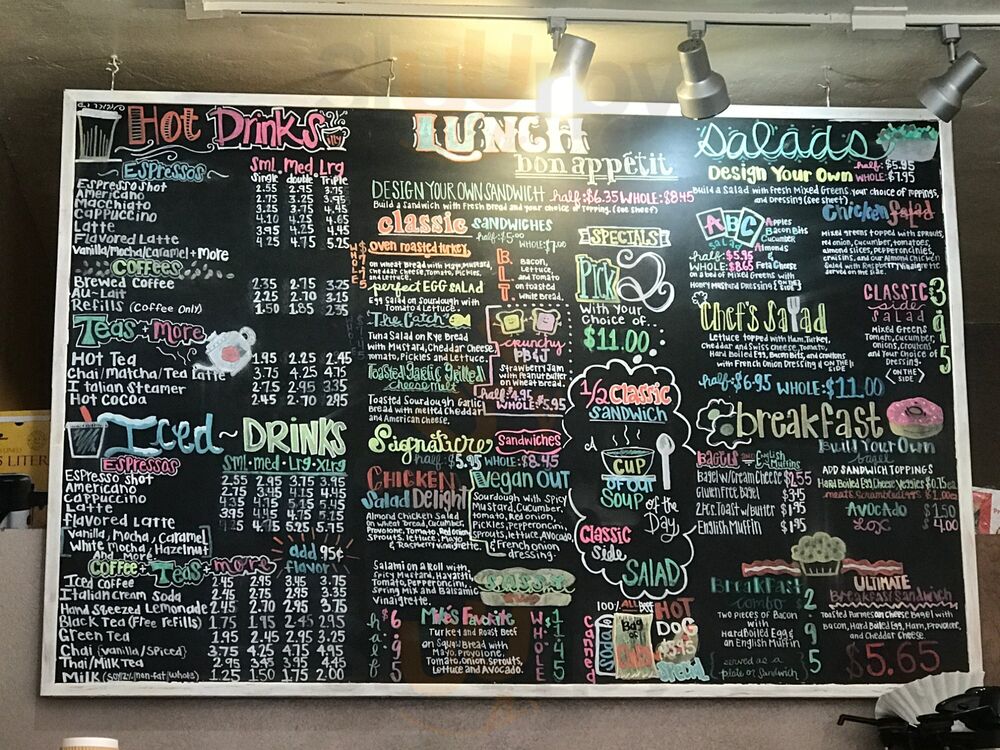 Hot Drinks
Espressos
Sml. Med. Lrg
Single double Triple
Espresso Shot 2.55 2.95 3.75
Americano 2.75 3.25 3.95
Macchiato 3.25 3.75 4.45
Cappuccino 4.10 4.25 4.65
Latte 3.95 4.25 4.95
Flavored Latte 4.25 4.75 5.25
Vanilla/Mocha/Caramel + More
Coffees
Brewed Coffee 2.35 2.75 3.25
Au-Lait 2.25 2.70 3.15
Refills (Coffee Only) 1.50 1.85 2.35
Teas + More
Hot Tea 1.95 2.25 2.45
Chai/Matcha/Tea Latte 3.75 4.25 4.75
Italian Steamer 2.75 2.95 3.35
Hot Cocoa 2.45 2.70 2.95
Iced ~ DRINKS
Espressos
Sml. med. Lrg. XLrg
Espresso Shot 2.55 2.95 3.75 3.95
Americano 2.75 3.45 4.15 4.45
Cappuccino
Latte
Flavored Latte 4.25 4.75 5.25 5.75
Vanilla, Mocha, Caramel
White Mocha, Hazelnut
And More
add 95¢
flavor
Coffee + Teas + more
Iced Coffee 2.45 2.95 3.45 3.75
Italian Cream Soda 2.45 2.75 2.95 3.45
Hand Sqeezed Lemonade 2.45 2.70 2.95 3.75
Black Tea (Free Refills) 1.75 1.95 2.45 2.95
Green Tea 1.95 2.45 2.95 3.25
Chai (Vanilla/Spiced) 3.75 4.25 4.75 4.95
Thai/Milk Tea 2.95 3.45 3.95 4.45
Milk (Soy/2%/non-fat/whole) 1.25 1.50 1.75 2.00
LUNCH
bon appétit
DESIGN YOUR OWN SANDWICH half: $6.35 WHOLE: $8.45
Build a Sandwich with Fresh Bread and your choice of topping. (See sheet)
classic SANDWICHES
half: $5.00 WHOLE: $7.00
oven roasted turkey
on wheat Bread with
Cheddar Cheese, Tomato, Pickles,
and Lettuce.
perfect EGG SALAD
Egg Salad on Sourdough with
Tomato & Lettuce.
The Catch
Tuna Salad on Rye Bread
with Mustard, Cheddar Cheese
Tomato, Pickles and Lettuce
Toasted Garlic Grilled
cheese melt
Toasted Sourdough Garlic
Bread with melted Cheddar
and American Cheese.
B L T
Bacon,
Lettuce,
and Tomato
on toasted
White Bread.
crunchy
PB&J
Strawberry Jam
with Peanut Butter
on Wheat Bread.
half: 4.95
WHOLE: 5.95
Signature Sandwiches
half: $5.95 WHOLE: $8.45
CHICKEN
Salad Delight
Almond Chicken Salad
on wheat Bread, Cucumber,
Provolone, Tomato, Red onion
Sprouts, Lettuce, Mayo
& Raspberry Vinaigrette.
Vegan OUT
Sourdough with Spicy
Mustard, Cucumber,
Tomato, Red Onion,
Pickles, Pepperoncini,
Sprouts, Lettuce, Avocado,
& French onion
dressing.
Salami on a Roll with
Spicy Mustard, Havarti,
Tomato, Pepperoncini,
Spring Mix and Balsamic
Vinaigrette.
SASSY
half $6.95
Mike's Favorite
Turkey and Roast Beef
on Squaw Bread with
Mayo, Provolone,
Tomato, Onion, Sprouts,
Lettuce and Avocado.
WHOLE $11.45
SPECIALS
PICK 2
With Your
Choice of...
$11.00
1/2 Classic
SANDWICH
a
CUP
OF OUR
SOUP of the
Day
Classic
side
SALAD
100% ALL beef
HOT
DOG
Canned
Soda
Bag of
CHIPS
Salads
half: $5.95
Design Your Own WHOLE: $7.95
Build a Salad with Fresh Mixed Greens, your choice of toppings,
and Dressing (See sheet)
ABC
Salad
Apples
Bacon Bits
Cucumber
Almonds
Feta Cheese
half: $5.95
WHOLE: $8.65
on a bed of Mixed Greens with
Honey Mustard Dressing (on the side)
Chicken Salad
Mixed greens topped with sprouts,
red onion, cucumber, tomatoes,
almond slices, pepperoncinis,
craisins, and our Almond Chicken
Salad with Raspberry Vinaigrette
served on the side.
Chef's Salad
Lettuce topped with Ham, Turkey,
Cheddar and Swiss Cheese, Tomato,
Hard Boiled Egg, Bacon Bits, and Croutons
with French Onion Dressing (ON THE SIDE)
half: $6.95 WHOLE: $11.00
CLASSIC
side
SALAD
3.95
Mixed Greens
Tomato,
Cucumber,
Onions, Croutons
and Your Choice of
Dressing.
(ON THE SIDE)
breakfast
Bagels and English Muffins
Bagel w/ Cream Cheese $2.55
Gluten Free Bagel $3.45
2 Pcs. Toast w/ Butter $1.95
English Muffin $1.95
Build Your Own
bagel
ADD SANDWICH TOPPINGS
Hard Boiled Egg, Cheese, Veggies $0.75 ea
AVOCADO $1.50
LOX $4.00
Breakfast
Combo
Two pieces of
Bacon with
Hard Boiled Egg &
an English Muffin
served as a
plate or sandwich
2.95
ULTIMATE
Breakfast Sandwich
Toasted Parmesan Cheese Bagel with
Bacon, Hard Boiled Egg, Ham, Provolone,
and Cheddar Cheese.
$5.65